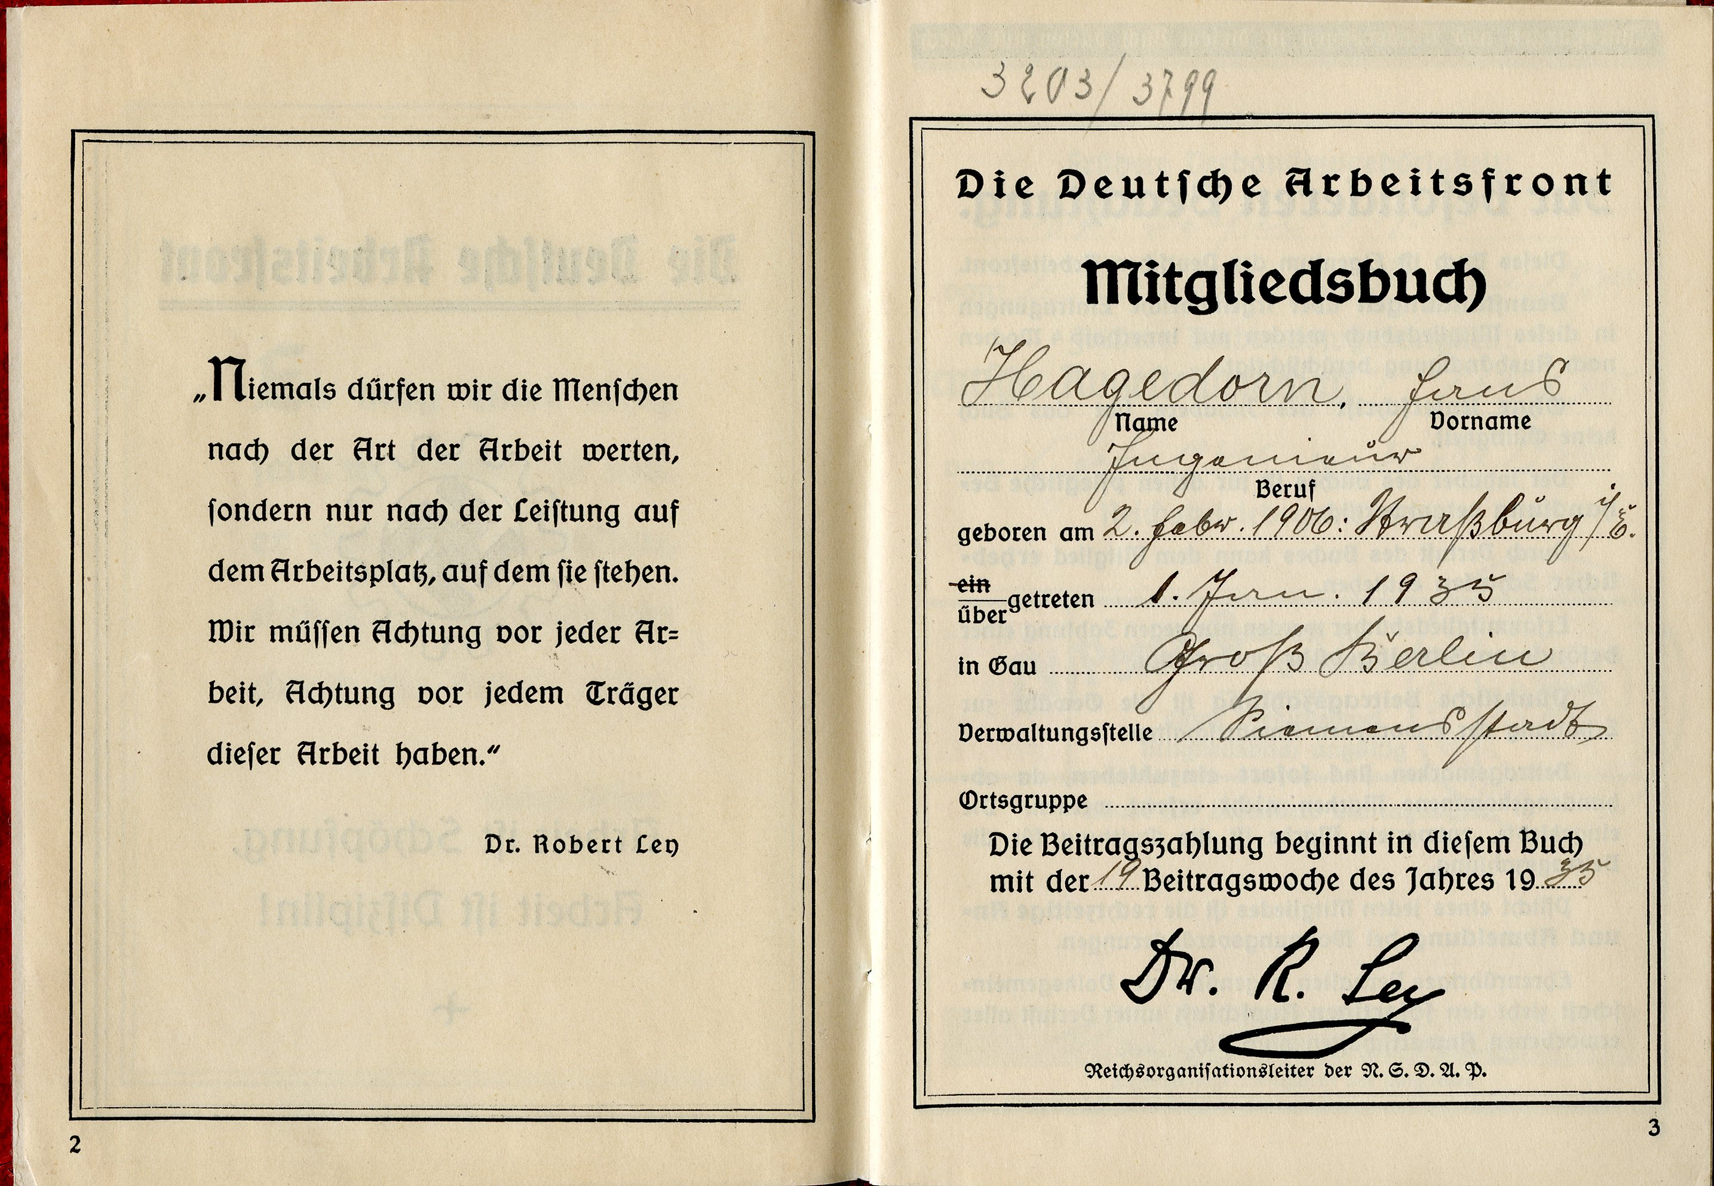 „Niemals dürfen wir die Menschen
nach der Art der Arbeit werten,
sondern nur nach der Leistung auf
dem Arbeitsplatz, auf dem sie stehen.
Wir müssen Achtung vor jeder Ar=
beit, Achtung vor jedem Träger
dieser Arbeit haben.“
Dr. Robert Ley
2
3203/3799
Die Deutsche Arbeitsfront
Mitgliedsbuch
Hagedorn, Hans
Name Vorname
Ingenieur
Beruf
geboren am 2. Febr. 1906: Straßburg i/E.
ein
über getreten 1. Jan. 1935
in Gau Groß Berlin
Verwaltungsstelle Siemensstadt
Ortsgruppe
Die Beitragszahlung beginnt in diesem Buch
mit der 19 Beitragswoche des Jahres 1935
Dr. R. Ley
Reichsorganisationsleiter der N. S. D. A. P.
3